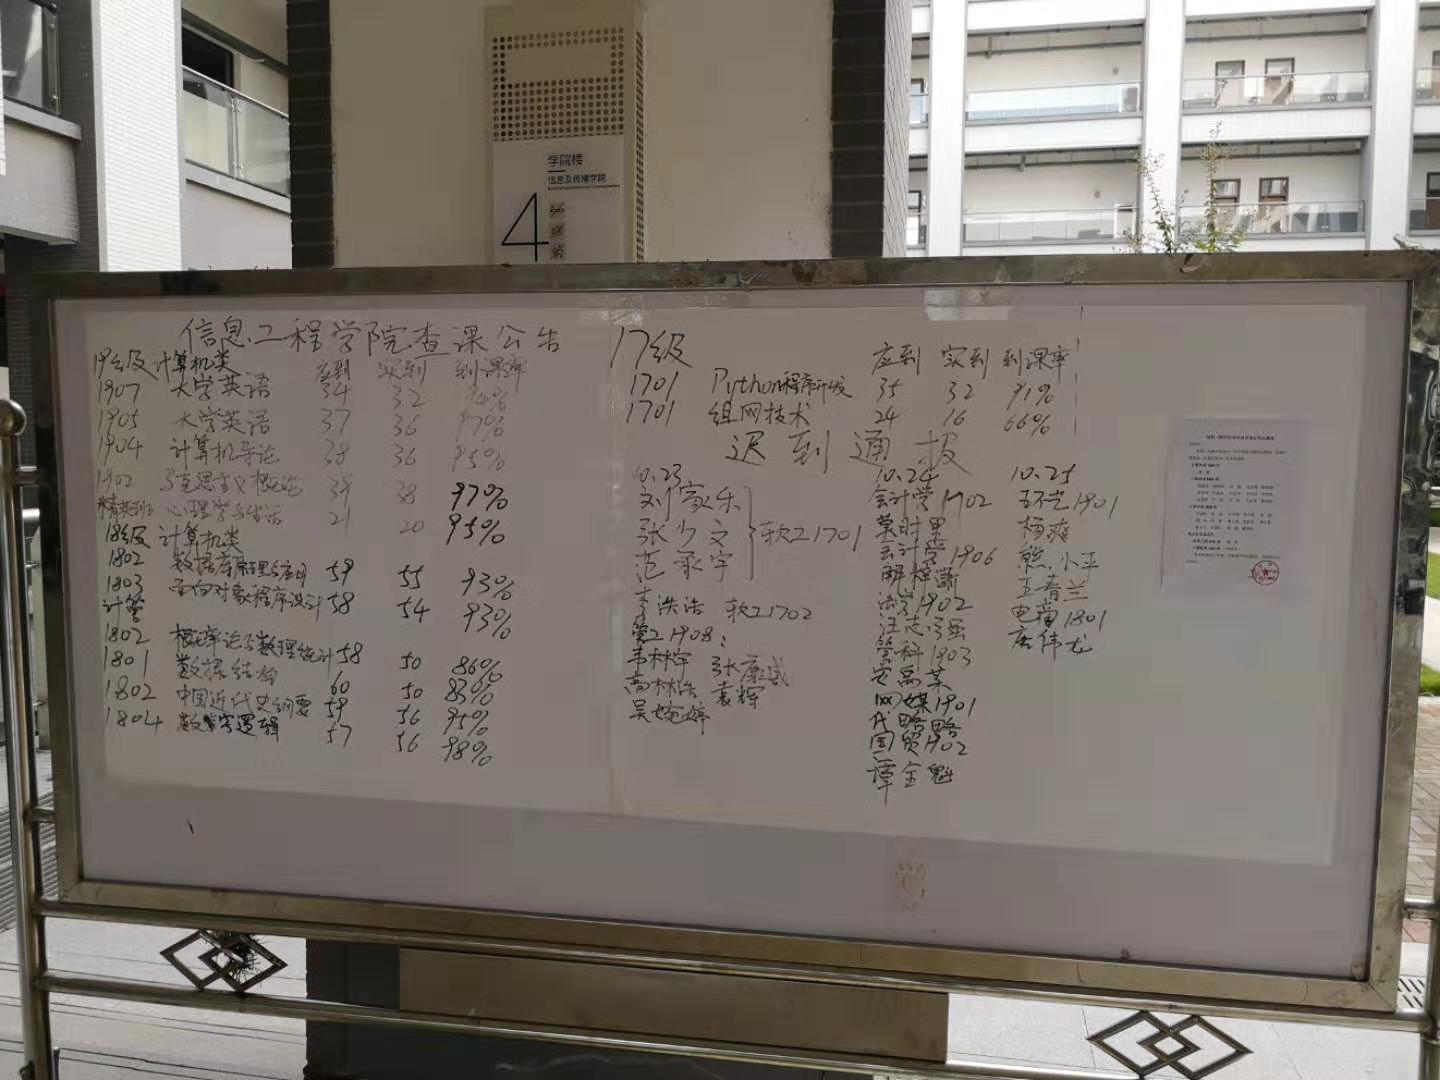 学院楼
信息及传播学院
4
信息工程学院查课公告
19级计算机类 应到 实到 到课率
1907 大学英语 34 32 94%
1905 大学英语 37 36 97%
1904 计算机导论 38 36 95%
1902 马克思主义概论 39 38 97%
精英班 心理学与生活 21 20 95%
18级计算机类
1802 数据库原理与应用 59 55 93%
1803 面向对象程序设计 58 54 93%
计算
1802 概率论与数理统计 58 50 86%
1801 数据结构 60 50 83%
1802 中国近代史纲要 59 56 95%
1804 数字逻辑 57 56 98%
17级
应到 实到 到课率
1701 Python程序开发 35 32 91%
1701 组网技术 24 16 66%
迟到通报
10.23
刘家乐
张少文 软工1701
范承宇
李洪浩 软工1702
管工1908:
韦林宇 张康盛
高林浩 袁辉
吴婉婷
10.24
会计学1902
莫时果
会计学1906
解梓潇
法学1902
汪志强
管科1803
安禹某
网媒1901
代略略
国贸1902
谭金魁
10.25
环艺1901
杨爽
熊小平
王青兰
电商1801
唐伟龙